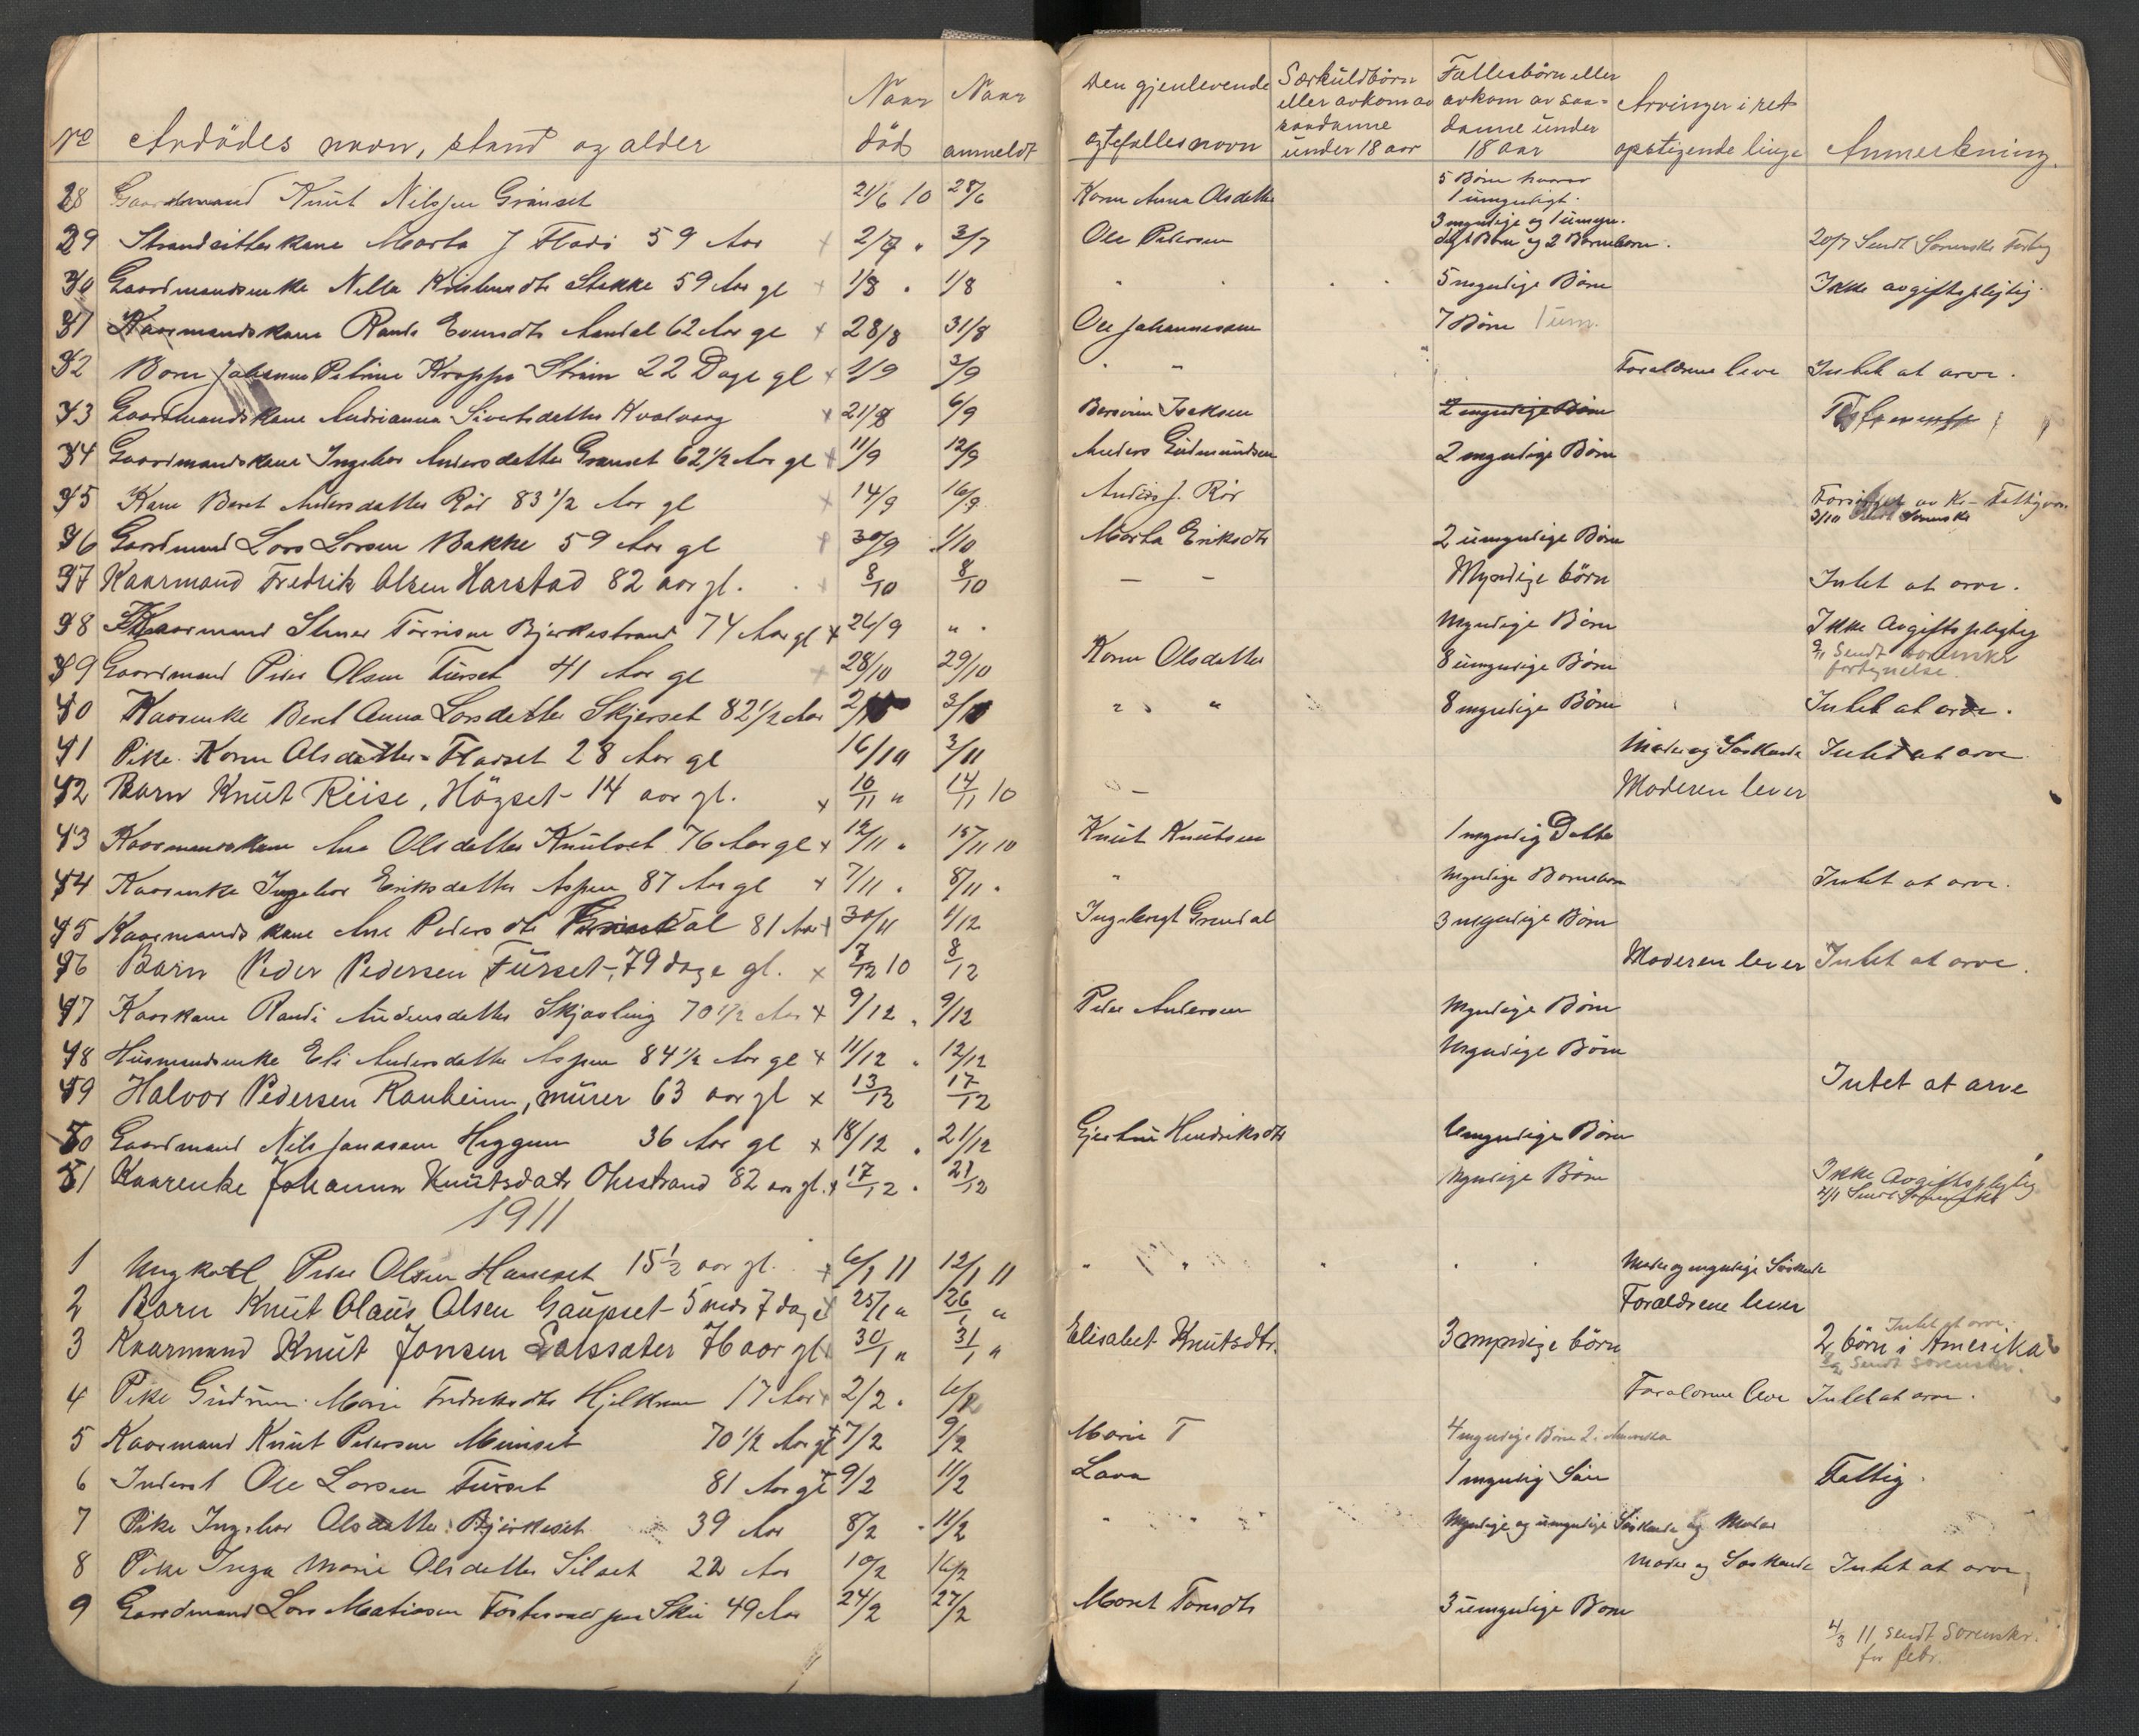 No Avdödes navn, stand og alder Naar död Naar anmeldt Den gjenlevende egtefælles navn Særkuldbörn eller avkom av saadanne under 18 aar Fællesbörn eller avkom av saadanne under 18 aar Arvinger i ret opstigende linje Anmerkning.
28 Gaardmand Knut Nilssen Gränset 21/6 10 28/6 Karen Anna Olsdatter 5 Börn hvorav 1 umyndigt.
29 Strandsitterkone Marta J 59 Aar 2/7 " 3/7 Ole Pedersen 3 myndige og 1 umyn. digt Barn og 2 Barnebarn. 20/7 Sendt Sorenskr
30 Gaardmandsenke Stokke 59 Aar gl 1/8 " 1/8 " 5 myndige Börn Ikke avgiftspligtig.
31 Kaarmandskone 62 Aar gl x 28/8 31/8 Ole Johannessen 7 Börn 1 um.
32 Barn Johanne Petrine Ström 22 Dage gl x 1/9 3/9 " " Forældrene leve Intet at arve.
33 Gaardmandskone Andrianna Sivertsdatter Kvalvaag x 21/8 6/9 2 myndige Börn
34 Gaardmandskone Ingebor Andersdatter Granset 62 1/2 Aar gl x 11/9 12/9 Anders Gudmundsen 2 myndige Börn
35 Kone Beret Andersdatter Rör 83 1/2 Aar gl x 14/9 16/9 Anders J. Rör av
3/10
36 Gaardmand Lars Larsen Bakke 59 Aar gl 30/9 1/10 Marta Eriksdtr 2 umyndige Börn
37 Kaarmand Fredrik Olsen Harstad 82 aar gl. 8/10 8/10 – – Myndige börn Intet at arve.
38 Kaarmand Bjerkestrand 74 Aar gl x 26/9 " Myndige Börn Ikke Avgiftspligtig
39 Gaardmand Peder Olsen Furset 41 Aar gl x 28/10 29/10 Karen Olsdatter 8 umyndige Börn Sendt sorenskr fortegnelse.
40 Kaarenke Beret Anna Larsdatter Skjerset 82 1/2 Aar " " 8 myndige Börn Intet at arve.
41 Pike Karen Olsdatter 28 Aar gl 16/10 3/11 Moder og Söskende Intet at arve
42 Barn Knut Riise, Högset - 14 aar gl. x 10/11 " 14/11 10 Moderen lever
43 Kaarmandskone Ane Olsdatter Knutset 76 Aar gl x 12/11 " 15/11 10 Knut Knutsen 1 myndig Datter
44 Kaarenke Ingebor Eriksdatter Aspen 87 Aar gl x 7/11 " 8/11 " " Myndige Barnebarn Intet at arve.
45 Kaarmandskone Ane Pedersdtr 81 Aar x 30/11 1/12 Ingebregt Grendal 3 myndige Börn
46 Barn Peder Pedersen Furset, 79 dage gl. x 7/12 10 8/12 Moderen lever Intet at arve.
47 Kaarkone Randi Andersdatter Skjævling 70 1/2 Aar x 9/12 " 9/12 Peder Andersen Myndige Börn
48 Husmandsenke Eli Andersdatter Aspen 84 1/2 Aar gl x 11/12 " 12/12 Myndige Börn
49 Halvor Pedersen Ranheim, murer 63 aar gl x 13/12 17/12 Intet at arve
50 Gaardmand Nils Jonassen Heggem 36 Aar gl x 18/12 " 21/12 Hendriksdtr Umyndige Börn
51 Kaarenke Johanna Knutsdatr 82 aar gl. x 17/12 " 21/12 Myndige Börn Ikke Avgiftspligtig
1911
1 Ungkarl Peder Olsen Hanseset 15 1/2 aar gl. x 6/1 11 12/1 11 " " " Moder og myndige Söskende
2 Barn Knut Olaus Olsen Gaupset - 5 mdr 7 dage 25/1 " 26/1 " Forældrene lever
Intet at arve.
3 Kaarmand Knut Jonsen 76 aar gl 30/1 " 31/1 " Elisabet Knutsdtr. 3 myndige börn 2 börn i Amerika
Sendt sorenskr.
4 Pike Gudrun Marie Fredriksdtr Hjelkrem 17 Aar x 2/2 " Forældrene leve Intet at arve.
5 Kaarmand Knut Pedersen 70 1/2 Aar gl 7/2 9/2 Marie T 4 myndige Börn 2 i Amerika
6 Inderst Ole Larsen Furset 81 Aar gl 9/2 11/2 Lava 1 myndig Sön Fattig.
7 Pike Ingebor Olsdatter Bjerkeset 39 Aar 8/2 11/2 " " Myndige og umyndige Söskende og Moder
8 Pike Inga Marie Olsdatter Silset 22 Aar 10/2 16/2 Moder og Söskende Intet at arve
9 Gaardmand Lars Matiasen 49 Aar 24/2 27/2 Marit 3 umyndige Börn
4/3 11 sendt Sorenskr.
for febr.